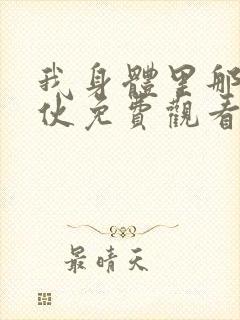 我身體里那
伙免費觀看
最晴天